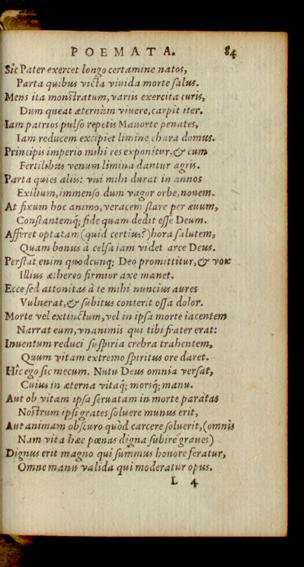 POEMATA. 84
Sic Pater exercet longo certamine natos,
Parta quibus victa viuida morte salus.
Mens ita monstratum, variis exercita curis,
Dum queat æternùm viuere, carpit iter.
Iam patrios pulso repetis Mauorte penates,
Iam reducem excipiet limine chara domus.
Principis imperio mihi res exponitur, & cum
Fertilibus venum limina dantur agris.
Parta quies aliis: vni mihi durat in annos
Exilium, immenso dum vagor orbe, nouem.
At fixum hoc animo, veracem stare per æuum,
Constantemq; fide quam dedit esse Deum.
Afferet optatam (quid certius?) hora salutem,
Quam bonus à celsa iam videt arce Deus.
Perstat enim quodcunq; Deo promittitur, & vox
Illius æthereo firmior axe manet.
Ecce sed attonitas à te mihi nuncius aures
Vulnerat, & subitus conterit ossa dolor.
Morte vel extinctum, vel in ipsa morte iacentem
Narrat eum, vnanimis qui tibi frater erat:
Inuentum reduci suspiria crebra trahentem,
Quum vitam extremo spiritus ore daret.
Hic ego sic mecum. Nutu Deus omnia versat,
Cuius in æterna vitaq; morsq; manu.
Aut ob vitam ipsa seruatam in morte paratas
Nostrum ipsi grates soluere munus erit,
Aut animam obscuro quòd carcere soluerit, (omnis
Nam vita hæc pœnas digna subire graues)
Dignus erit magno qui summus honore feratur,
Omne manus valida qui moderatur opus.
L 4